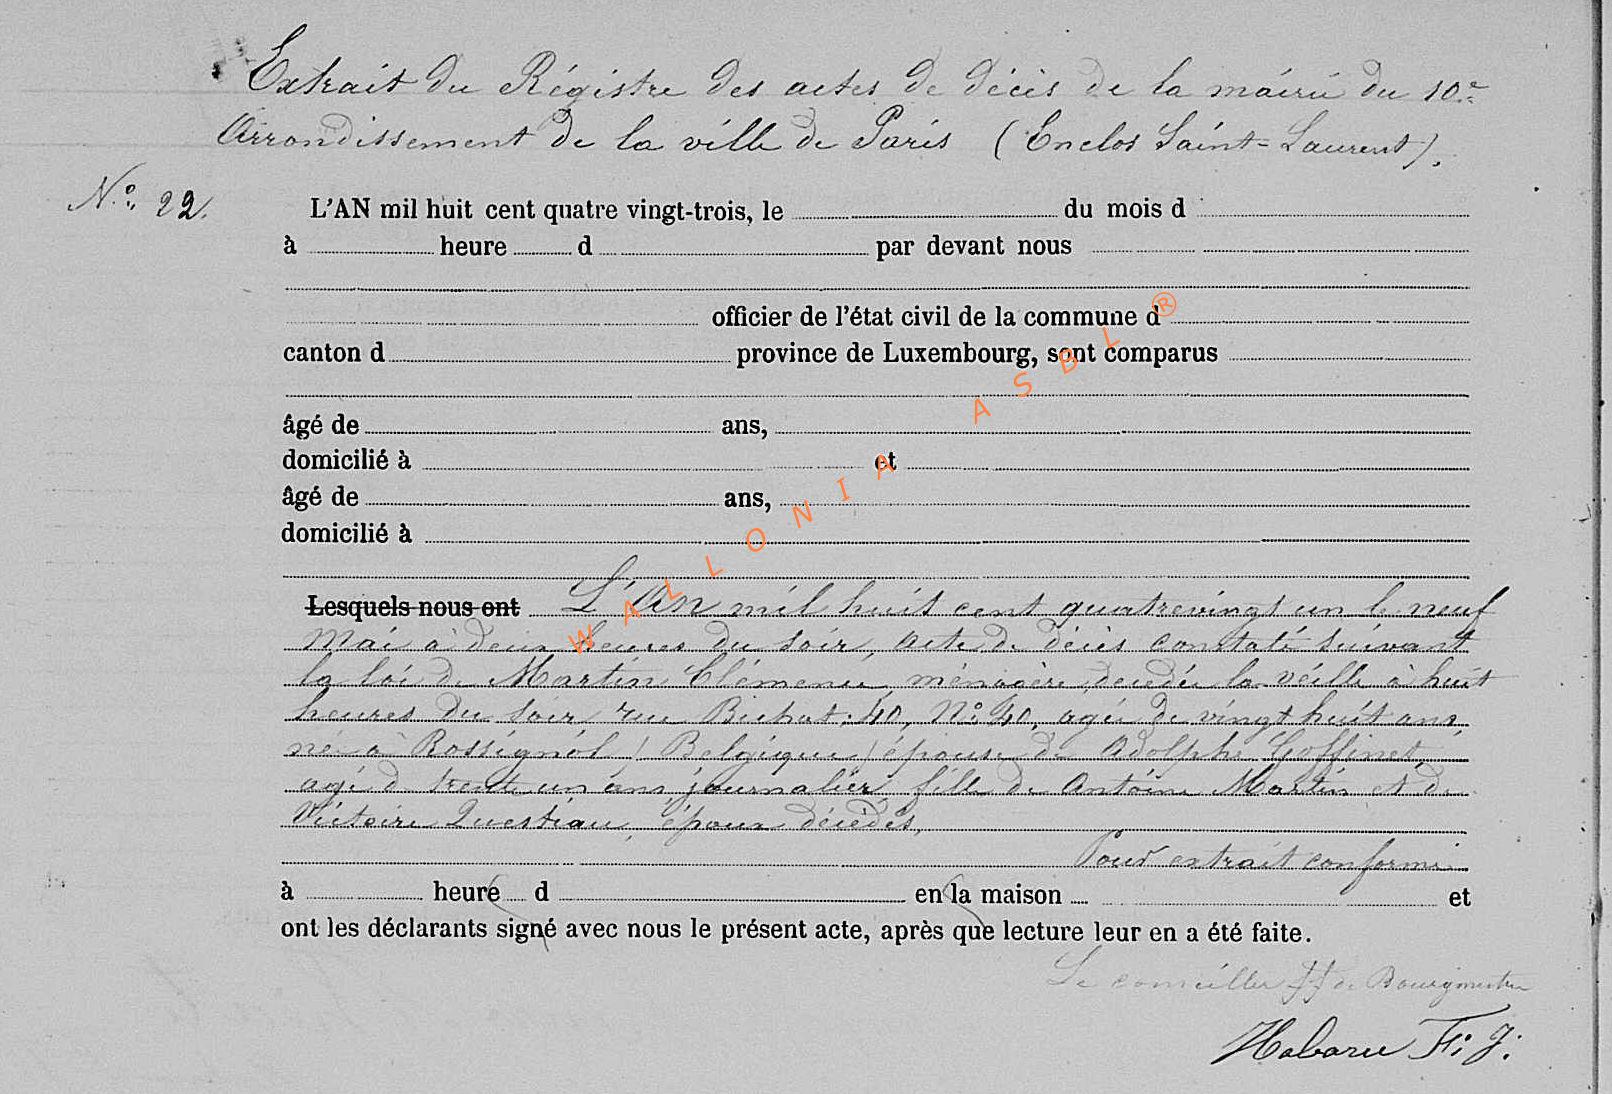 Extrait du Régistre des actes de décès de la mairie du 10.e
Arrondissement de la ville de Paris (Enclos Saint-Laurent).
N.o 22.
L'AN mil huit cent quatre vingt-trois, le du mois d
à heure d par devant nous
officier de l'état civil de la commune d
canton d province de Luxembourg, sont comparus
âgé de ans,
domicilié à et
âgé de ans,
domicilié à
Lesquels nous ont L'An mil huit cent quatrevingt un le neuf
Mai à deux heures du soir, acte de décès constaté suivant
la loi de Martin Clémence, ménagère, decedée la veille à huit
heures du soir rue Bichat: 40, No: 40, agée de vingt huit ans,
née à Rossignol (Belgique) épouse de Adolphe Goffinet,
agé d trente un ans journalier, fille de Antoine Martin et de
Victoire Questiau, époux décédés,
Pour extrait conforme
à heure d en la maison et
ont les déclarants signé avec nous le présent acte, après que lecture leur en a été faite.
Le conseiller ff de Bourgmestre
Habaru F. J.
WALLONIA ASBL ®